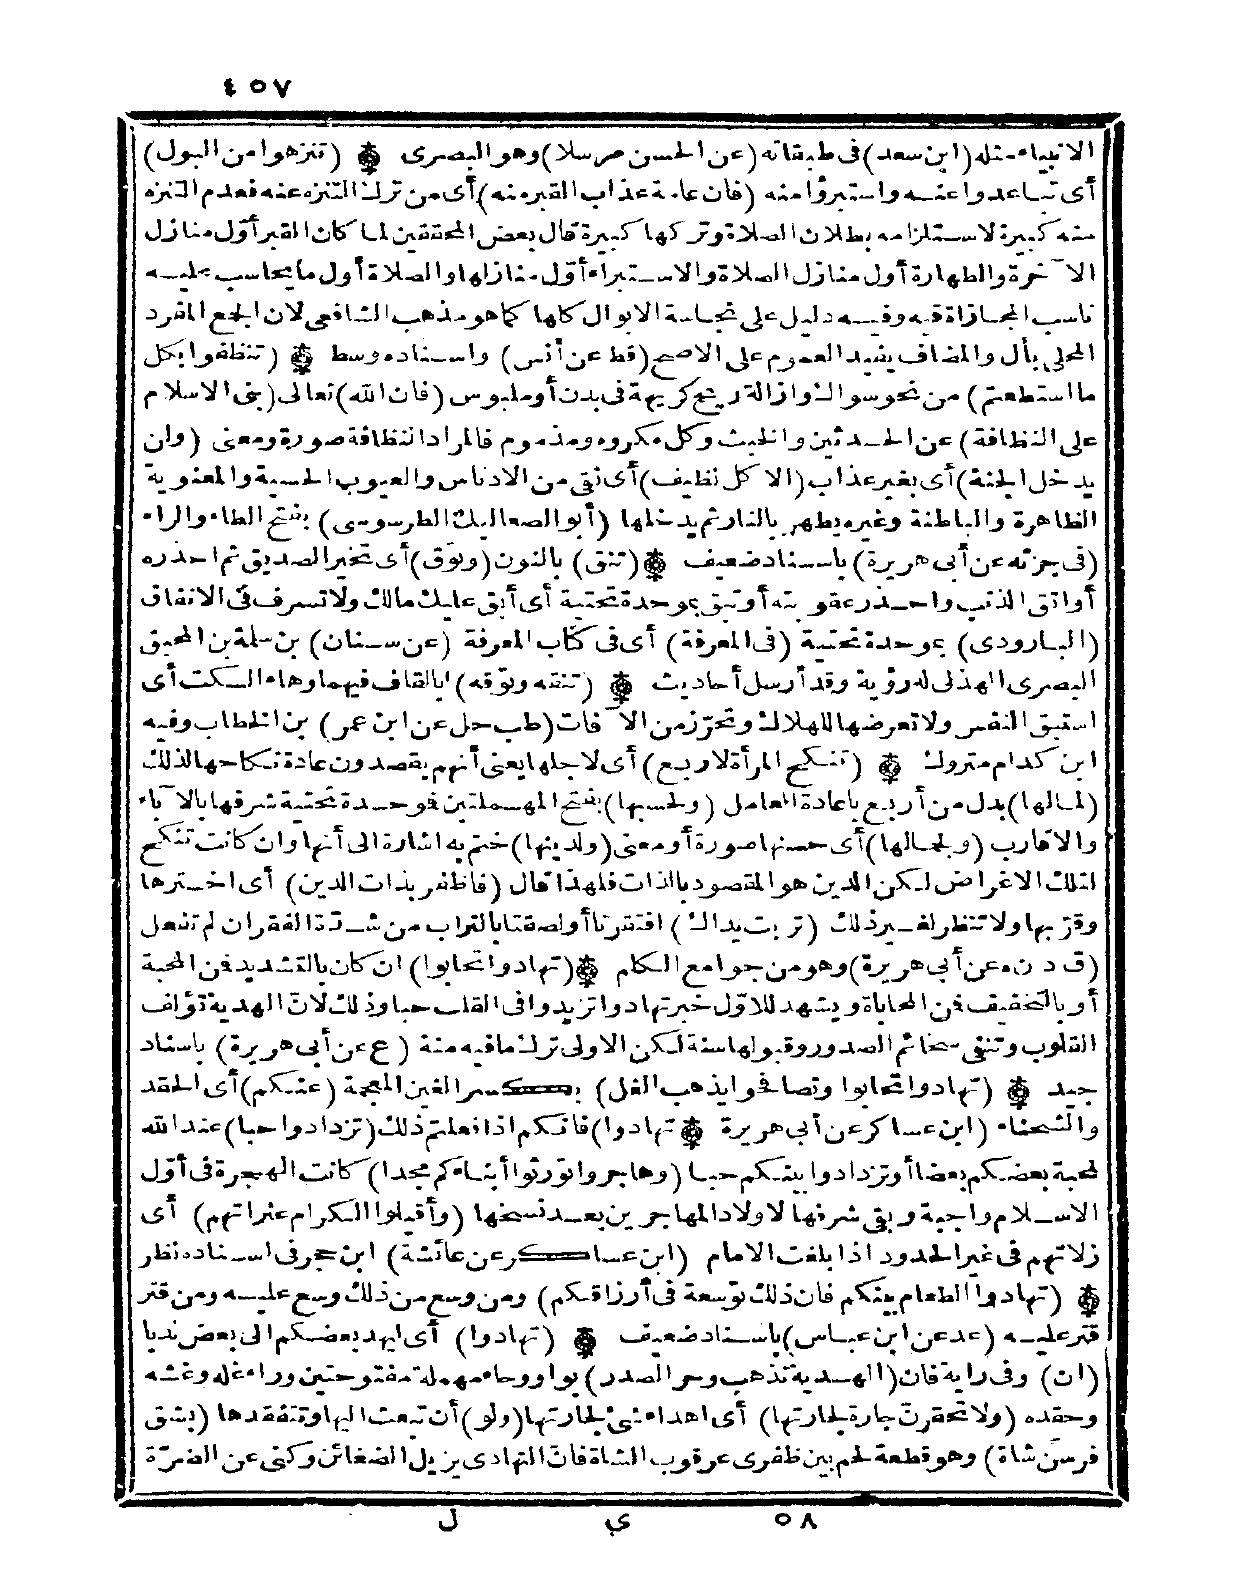 ٤٥٧
الانبياء مثله (ابن سعد) فى طبقاته (عن الحسن مرسلا) وهو البصرى ۞ (تنزهوا من البول)
أى تباعدوا عنه واستبرؤا منه (فان عامة عذاب القبر منه) أى من ترك التنزه عنه فعدم التنزه
منه كبيرة لاستلزامه بطلان الصلاة وتركها كبيرة قال بعض المحققين لما كان القبر أوّل منازل
الآخرة والطهارة أول منازل الصلاة والاستبراء أوّل منازلها والصلاة أول ما يحاسب عليه
ناسب المجازاة فيه وفيه دليل على نجاسة الابوال كلها كما هو مذهب الشافعى لان الجمع المفرد
المحلى بأل والمضاف يفيد العموم على الاصح (قط عن أنس) واسناده وسط ۞ (تنظفوا بكل
ما استطعتم) من نحو سواك وازالة ريح كريهة فى بدن أو ملبوس (فان الله) تعالى (بنى الاسلام
على النظافة) عن الحدثين والخبث وكل مكروه ومذموم فالمراد النظافة صورة ومعنى (ولن
يدخل الجنة) أى بغير عذاب (الا كل نظيف) أى نقى من الادناس والعيوب الحسية والمعنوية
الظاهرة والباطنة وغيره يطهر بالنار ثم يدخلها (أبو الصعاليك الطرسوسى) بفتح الطاء والراء
(فى جزئه عن أبى هريرة) باسناد ضعيف ۞ (تنق) بالنون (وتوق) أى تخير الصديق ثم احذره
أو اتق الذنب واحذر عقوبته أو تبق بموحدة تحتية أى أبق عليك مالك ولا تسرف فى الانفاق
(البارودى) بموحدة تحتية (فى المعرفة) أى فى كتاب المعرفة (عن سنان) بن سلمة بن المحبق
البصرى الهذلى له رؤية وقد أرسل أحاديث ۞ (تنقه وتوقه) بالقاف فيهما وهاء السكت أى
استبق النفس ولا تعرضها للهلاك وتحرّز من الآفات (طب حل عن ابن عمر) بن الخطاب وفيه
ابن كدام متروك ۞ (تنكح المرأة لاربع) أى لاجلها يعنى أنهم يقصدون عادة نكاحها لذلك
(لمالها) بدل من أربع باعادة العامل (ولحسبها) بفتح المهملتين فوحدة تحتية شرفها بالآباء
والاقارب (ولجمالها) أى حسنها صورة أو معنى (ولدينها) ختم به اشارة الى أنها وان كانت تنكح
لتلك الاغراض لكن الدين هو المقصود بالذات فلهذا قال (فاظفر بذات الدين) أى اخترها
وقربها ولا تنظر لغير ذلك (تربت يداك) افتقرتا أو لصقتا بالتراب من شدّة الفقر ان لم تفعل
(ق د ن ه عن أبى هريرة) وهو من جوامع الكلم ۞ (تهادوا تحابوا) ان كان بالتشديد فن المحبة
أو بالتخفيف فن المحاباة ويشهد للاوّل خبر تهادوا تزيدوا فى القلب حبا وذلك لانّ الهدية تؤلف
القلوب وتنفى سخائم الصدور وقبولها سنة لكن الاولى ترك ما فيه منة (ع عن أبى هريرة) باسناد
جيد ۞ (تهادوا تحابوا وتصافحوا يذهب الغل) بكسر الغين المعجمة (عنكم) أى الحقد
والشحناء (ابن عساكر عن أبى هريرة ۞ تهادوا) فانكم اذا فعلتم ذلك (تزدادوا حبا) عند الله
لمحبة بعضكم بعضا أو تزدادوا بينكم حبا (وهاجروا تورثوا أبناءكم مجدا) كانت الهجرة فى أوّل
الاسلام واجبة وبقى شرفها لاولاد المهاجرين بعد نسخها (وأقيلوا الكرام عثراتهم) أى
زلاتهم فى غير الحدود اذا بلغت الامام (ابن عساكر عن عائشة) ابن حجر فى اسناده نظر
۞ (تهادوا الطعام بينكم فان ذلك توسعة فى أرزاقكم) ومن وسع من ذلك وسع عليه ومن قتر
قتر عليه (عد عن ابن عباس) باسناد ضعيف ۞ (تهادوا) أى ليهد بعضكم الى بعض ندبا
(ان) وفى راية فان (الهدية تذهب وحر الصدر) بواو وحاء مهملة مفتوحتين وراء غله وغشه
وحقده (ولا تحقرنّ جارة لجارتها) أى اهداء شئ لجارتها (ولو) أن تبعث اليها وتتفقدها (بشق
فرسن شاة) وهو قطعة لحم بين ظفرى عرقوب الشاة فانّ التهادى يزيل الضغائن وكنى عن الضرّة
٥٨ ي ل